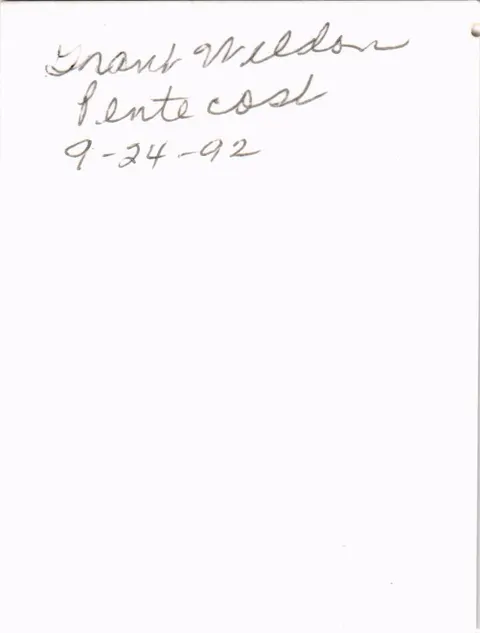 Grant Weldon
Pentecost
9-24-92